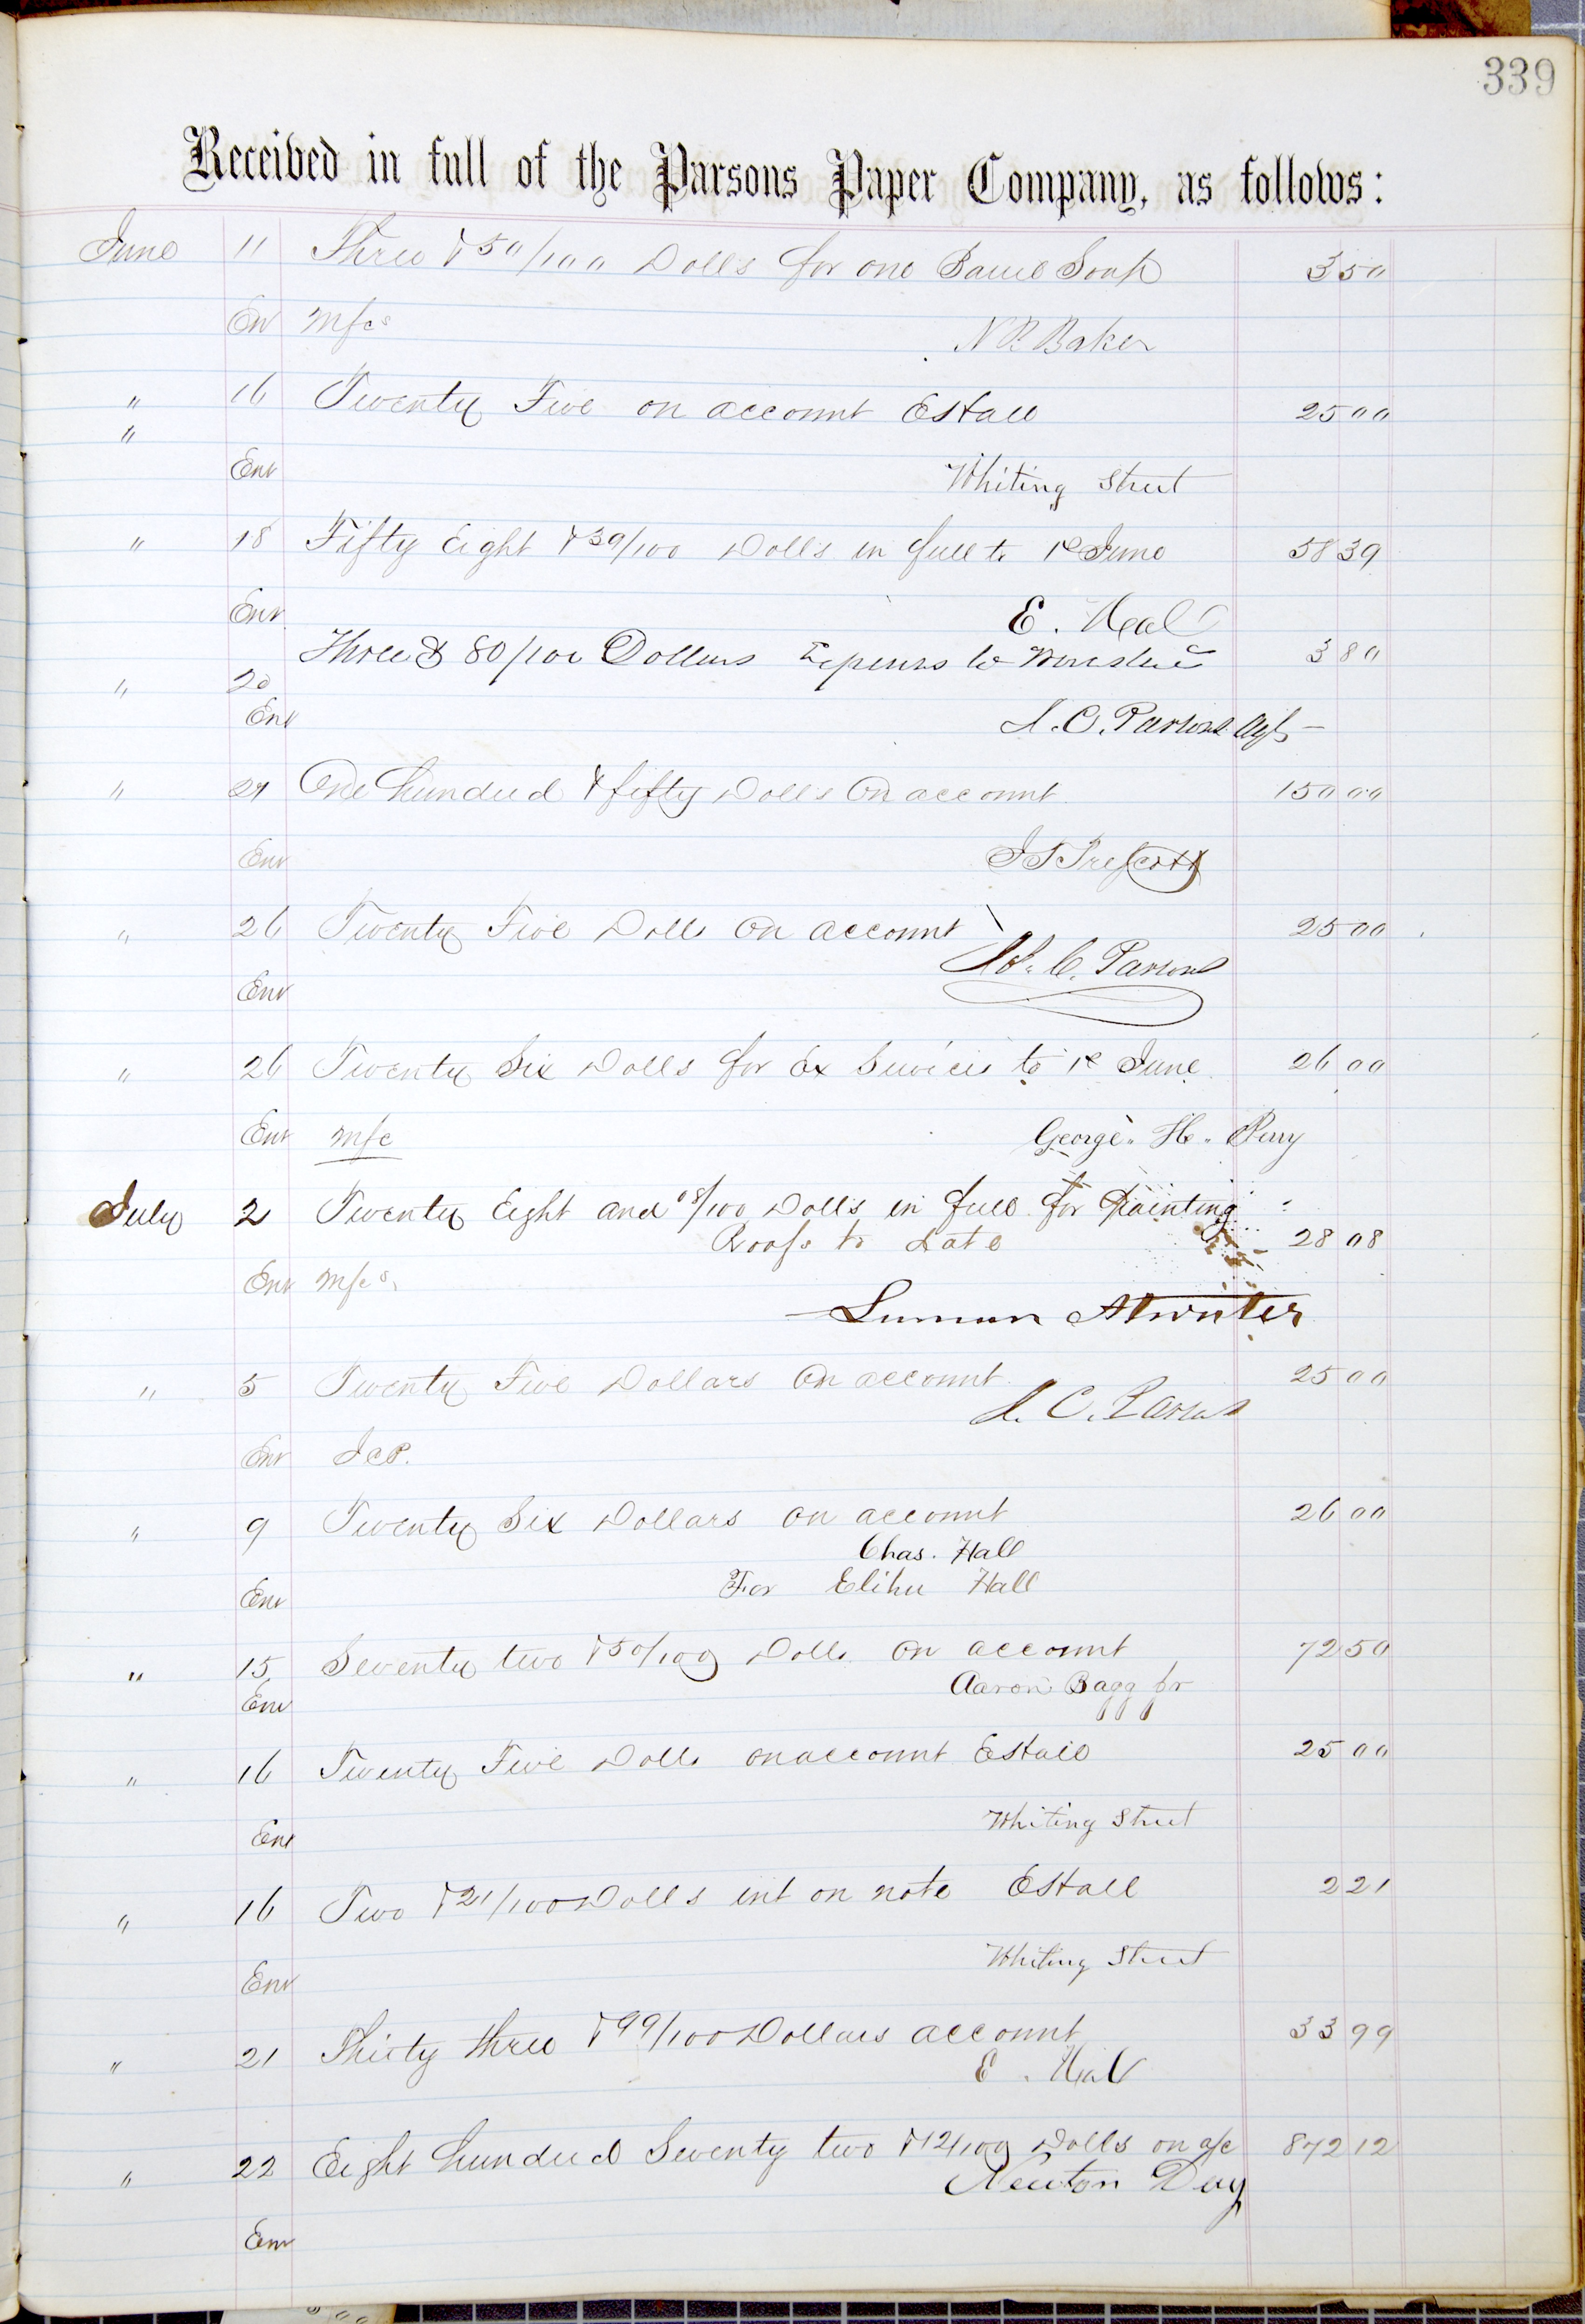 339
Received in full of the Parsons Paper Company, as follows:
June 11 Three & 50/100 Dolls for one Barrel Soap 3 50
Ent Mfcs N P. Baker
" 16 Twenty Five on account Estall 25 00
"
Ent Whiting Street
" 18 Fifty Eight & 39/100 Dolls in full to 1st June 58 39
Ent E. Heal
Three & 80/100 Dollars Expenses to Worcester 3 80
" 20
Ent J. C. Parsons Agt
" 21 One hundred & fifty Dolls On account 150 00
Ent J S Prescott
" 26 Twenty Five Dolls On account 25 00
Ent C. Parsons
" 26 Twenty Six Dolls for Ex Services to 1st June 26 00
Ent Mfc George. H. Perry
July 2 Twenty Eight and 08/100 Dolls in full for painting
Roofs to date 28 08
Ent Mfcs
Luman Atwater
" 5 Twenty Five Dollars On account 25 00
J. C. Parsons
Ent JCP.
" 9 Twenty Six Dollars on account 26 00
Chas. Hall
Ent For Elihu Hall
" 15 Seventy two & 50/100 Dolls on account 72 50
Ent Aaron Bagg Jr
" 16 Twenty Five Dolls on account Estall 25 00
Ent Whiting Street
" 16 Two & 21/100 Dolls int on note Estall 2 21
Ent Whiting Street
" 21 Thirty three & 99/100 Dollars account 33 99
E. Heal
" 22 Eight hundred Seventy two & 12/100 Dolls on a/c 872 12
Newton Day
Ent